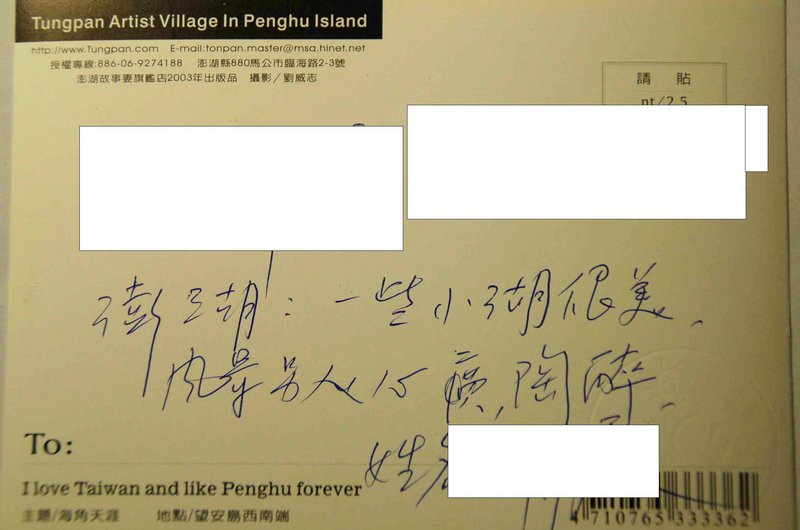 Tungpan Artist Village In Penghu Island
http://www.Tungpan.com E-mail:tonpan.master@msa.hinet.net
授權專線:886-06-9274188 澎湖縣880馬公市臨海路2-3號
澎湖故事妻旗艦店2003年出版品 攝影╱劉威志
請貼
nt/2.5
澎湖：一些小湖很美、
风景另人心旷,陶醉、
姓名
To:
I love Taiwan and like Penghu forever
主題/海角天涯 地點/望安島西南端
4 710765 333362